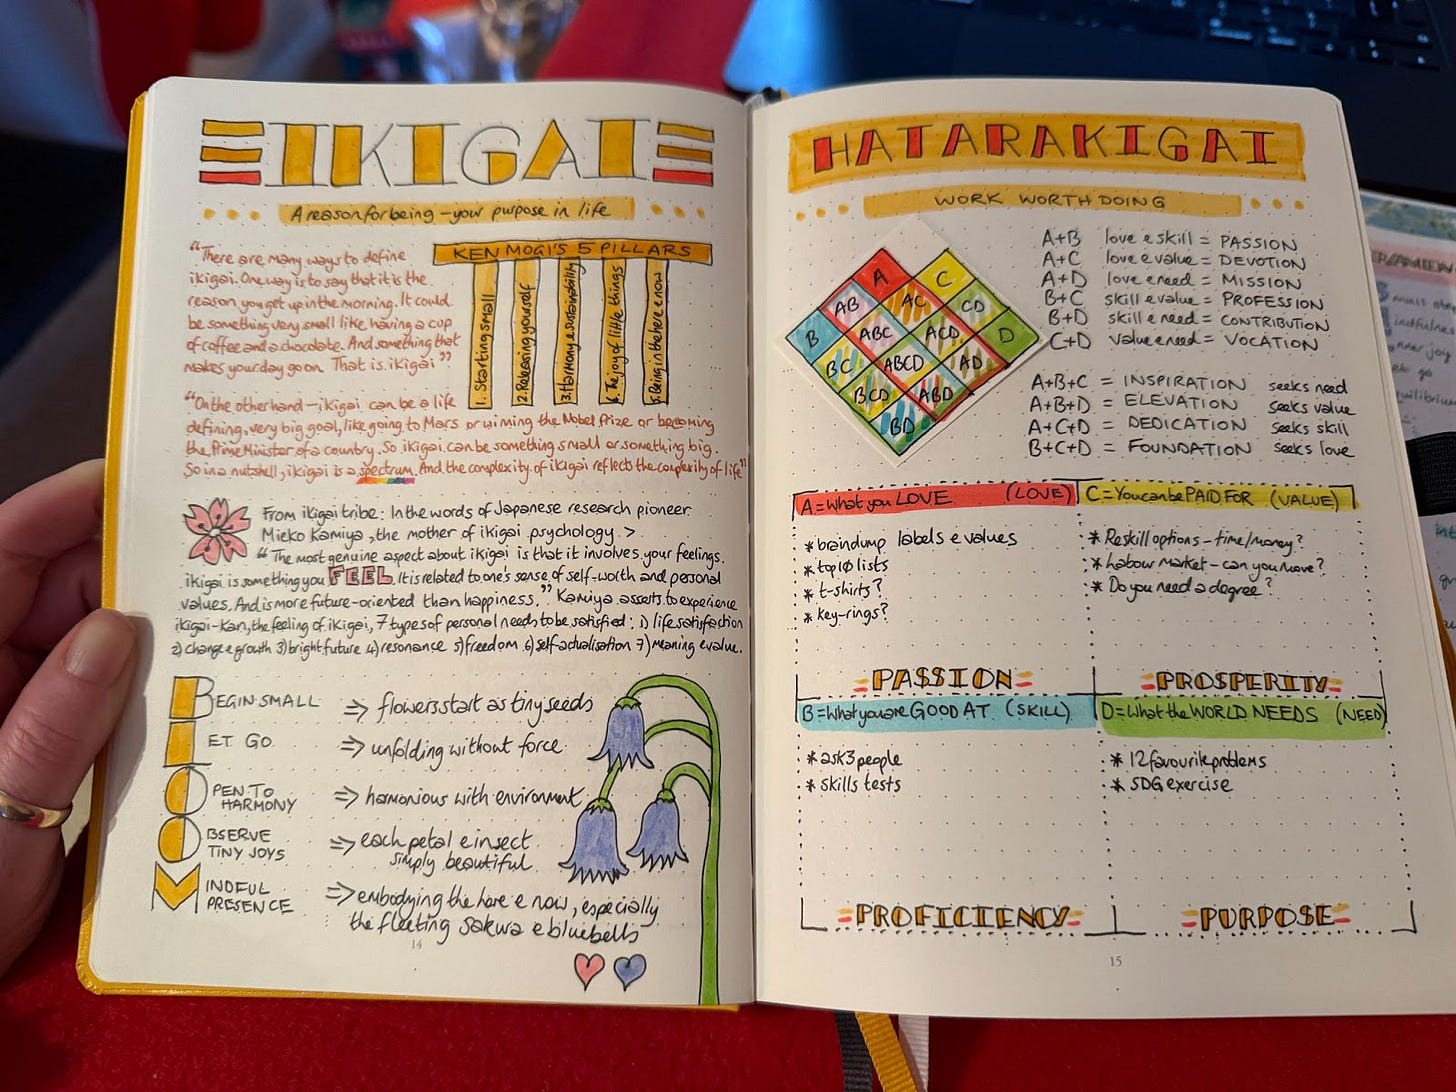 IKIGAI
A reason for being – your purpose in life
"There are many ways to define
ikigai. One way is to say that it is the
reason you get up in the morning. It could
be something very small like having a cup
of coffee and a chocolate. And something that
makes your day go on. That is ikigai"
KEN MOGI'S 5 PILLARS
1. Starting small
2. Releasing yourself
3. Harmony & sustainability
4. The joy of little things
5. Being in the here & now
"On the other hand – ikigai can be a life
defining, very big goal, like going to Mars or winning the Nobel Prize or becoming
the Prime Minister of a country. So ikigai can be something small or something big.
So in a nutshell, ikigai is a spectrum. And the complexity of ikigai reflects the complexity of life"
From ikigai tribe: In the words of Japanese research pioneer
Mieko Kamiya, the mother of ikigai psychology. >
"The most genuine aspect about ikigai is that it involves your feelings.
ikigai is something you FEEL. It is related to one's sense of self-worth and personal
values. And is more future-oriented than happiness." Kamiya asserts to experience
ikigai-kan, the feeling of ikigai, 7 types of personal needs to be satisfied: 1) life satisfaction
2) change & growth 3) bright future 4) resonance 5) freedom 6) self-actualisation 7) meaning & value.
BEGIN SMALL => flowers start as tiny seeds
LET GO => unfolding without force
OPEN TO
HARMONY => harmonious with environment
OBSERVE
TINY JOYS => each petal & insect
simply beautiful
MINDFUL
PRESENCE => embodying the here & now, especially
the fleeting sakura & bluebells
14
HATARAKIGAI
WORK WORTH DOING
A
C
AB
AC
CD
B
ABC
ACD
D
BC
ABCD
AD
BCD
ABD
BD
A+B love & skill = PASSION
A+C love & value = DEVOTION
A+D love & need = MISSION
B+C skill & value = PROFESSION
B+D skill & need = CONTRIBUTION
C+D value & need = VOCATION
A+B+C = INSPIRATION seeks need
A+B+D = ELEVATION seeks value
A+C+D = DEDICATION seeks skill
B+C+D = FOUNDATION seeks love
A = What you LOVE (LOVE)
* braindump labels & values
* top 10 lists
* t-shirts?
* key-rings?
PASSION
C = You can be PAID FOR (VALUE)
* Reskill options – time/money?
* Labour market – can you move?
* Do you need a degree?
PROSPERITY
B = What you are GOOD AT (SKILL)
* ask 3 people
* skills tests
PROFICIENCY
D = What the WORLD NEEDS (NEED)
* 12 favourite problems
* SDG exercise
PURPOSE
15